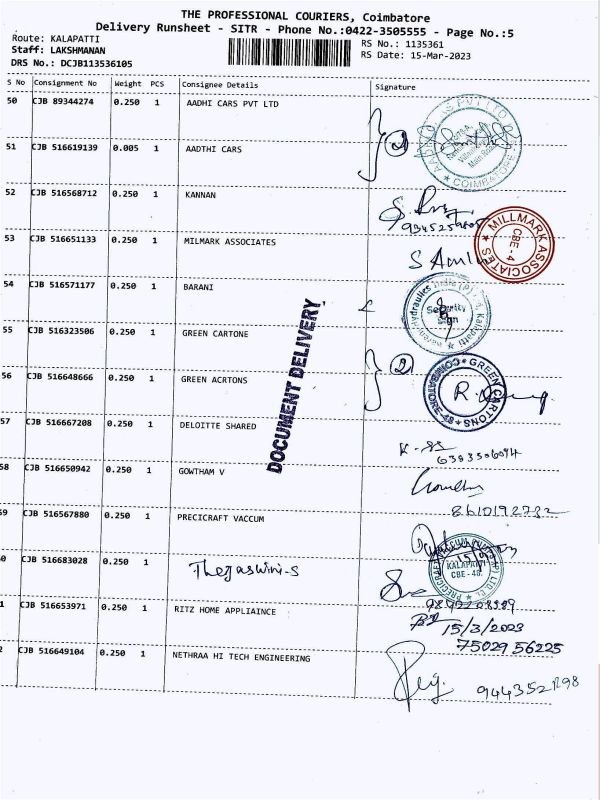 THE PROFESSIONAL COURIERS, Coimbatore
Delivery Runsheet - SITR - Phone No.:0422-3505555 - Page No.:5
Route: KALAPATTI
RS No.: 1135361
Staff: LAKSHMANAN
RS Date: 15-Mar-2023
DRS No.: DCJB113536105
S No Consignment No Weight PCS Consignee Details Signature
50 CJB 89344274 0.250 1 AADHI CARS PVT LTD
COIMBATORE
51 CJB 516619139 0.005 1 AADTHI CARS
2
52 CJB 516568712 0.250 1 KANNAN
53 CJB 516651133 0.250 1 MILMARK ASSOCIATES
MILLMARK ASSOCIATES
CBE-4
54 CJB 516571177 0.250 1 BARANI
Security
Sign
55 CJB 516323506 0.250 1 GREEN CARTONE
DOCUMENT DELIVERY
56 CJB 516648666 0.250 1 GREEN ACRTONS
2
GREEN CARTONS
57 CJB 516667208 0.250 1 DELOITTE SHARED
6383506094
58 CJB 516650942 0.250 1 GOWTHAM V
8610192732
59 CJB 516567880 0.250 1 PRECICRAFT VACCUM
KALAPATTI
CBE - 48.
0 CJB 516683028 0.250 1 Thejaswini-S
1 CJB 516653971 0.250 1 RITZ HOME APPLIAINCE
15/3/2023
75029 56225
2 CJB 516649104 0.250 1 NETHRAA HI TECH ENGINEERING